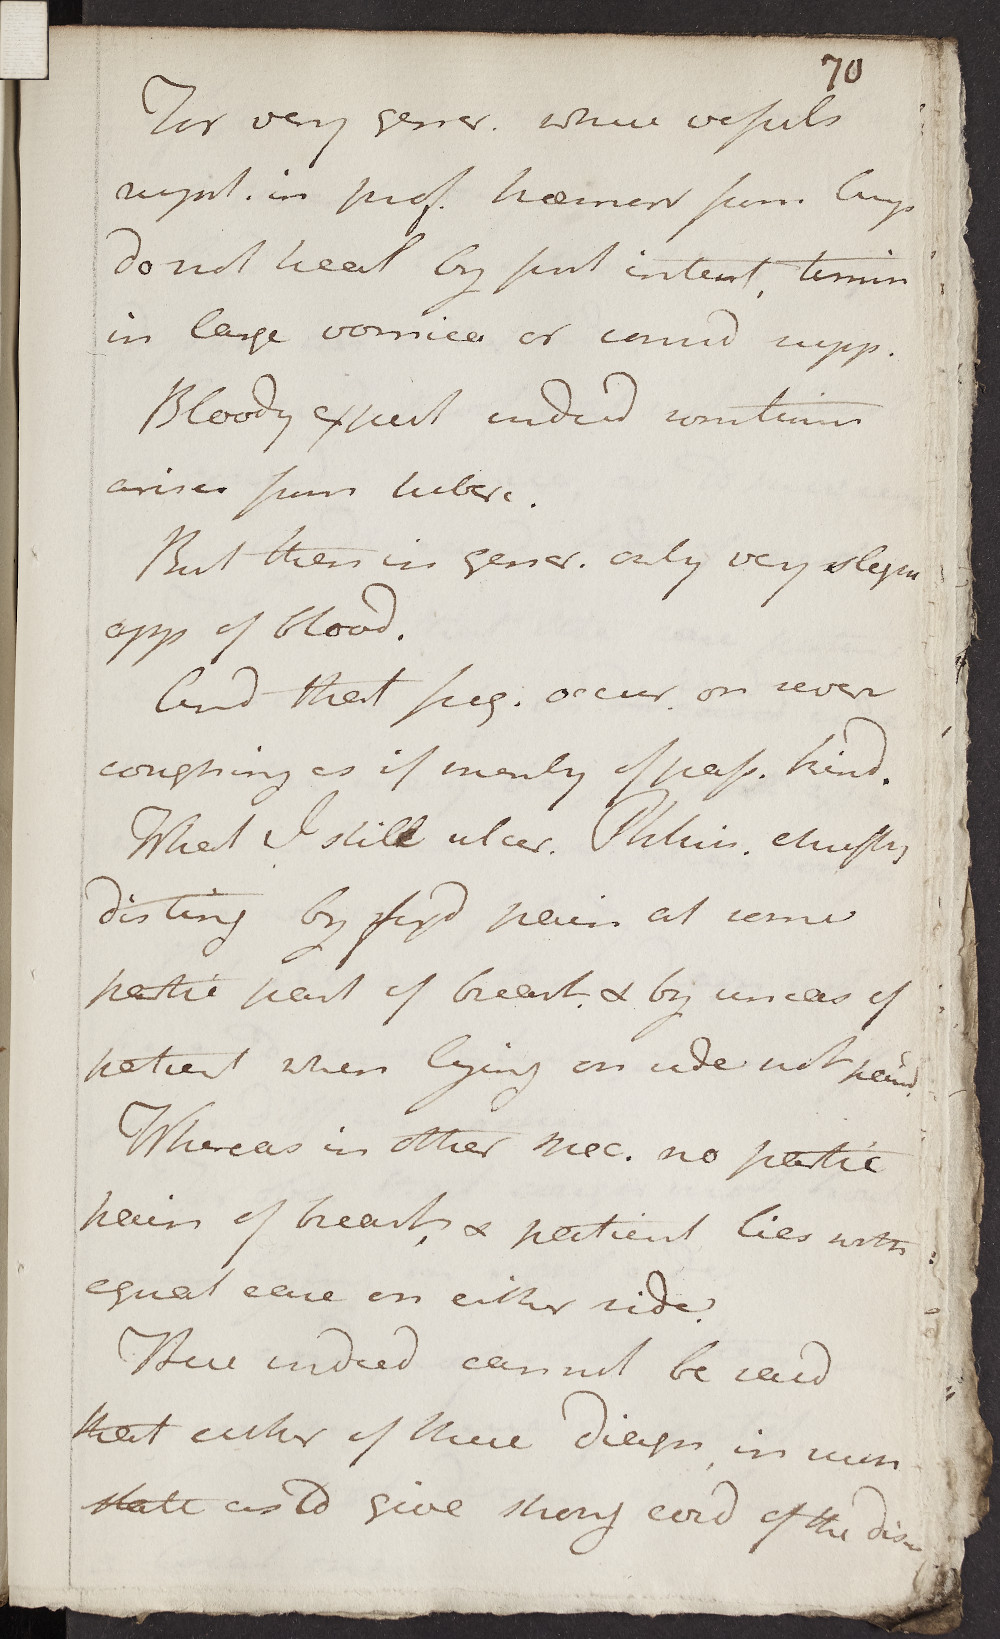 70
For very gener. where vessels
rupt. in prof. hæmorr from lungs
do not heal by first intent, termin
in large vomica or cound supp.
Bloody expect indeed sometimes
arises from tuberc.
But then in gener. only very slight
app of blood.
And that freq. occur. on sever
coughing as if merely of pass. kind.
What I still ulcer. Phthis. chiefly
disting by fixd pain at some
partic part of breast. & by uneas of
patient when lying on side not paind
Whereas in other spec. no partic
pain of breast, & patient lies with
equal ease on either side.
There indeed cannot be said
that either of these diagn, in such
state as to give strong evid of the dise